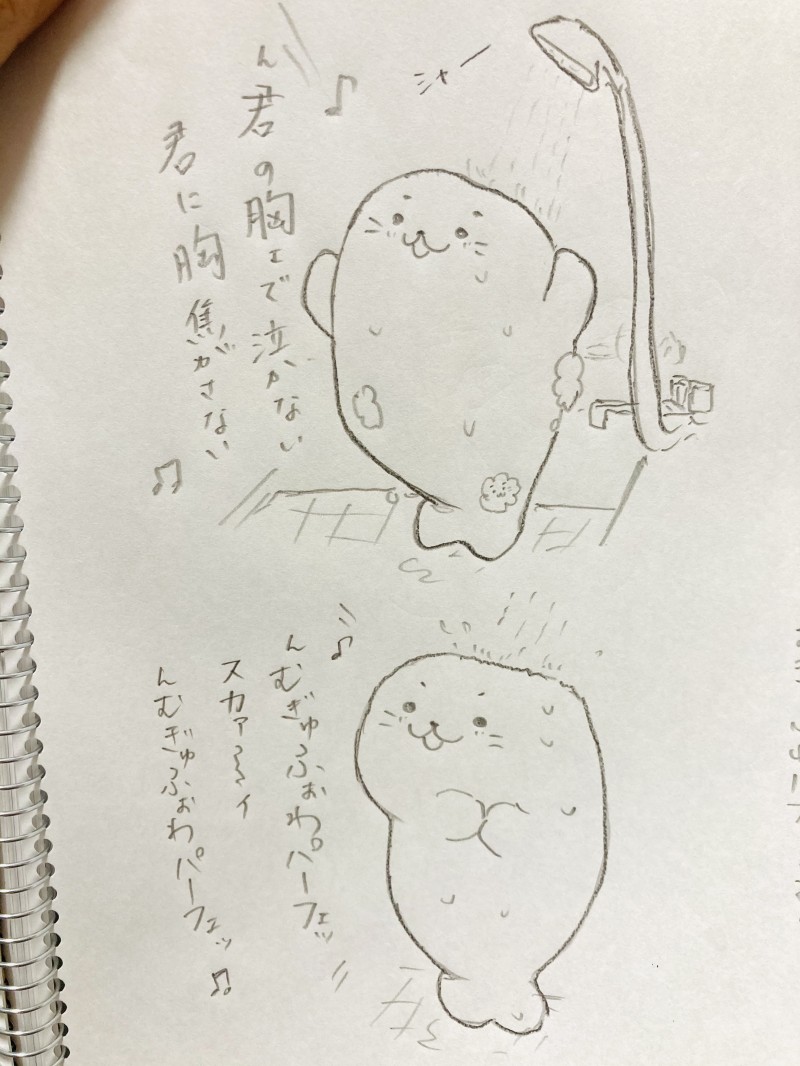 シャー
ん君の胸ェで泣かない
君に胸焦がさない
んむぎゅふぉわパーフェッ
スカァ〜〜ィ
んむぎゅふぉわパーフェッ